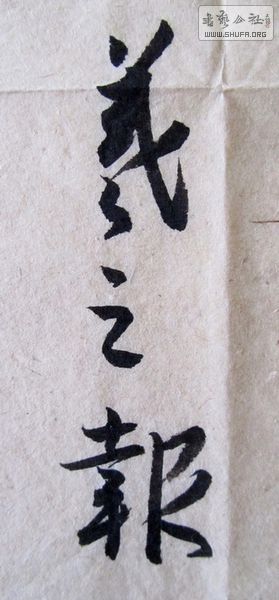 書藝公社
WWW.SHUFA.ORG
羲之報